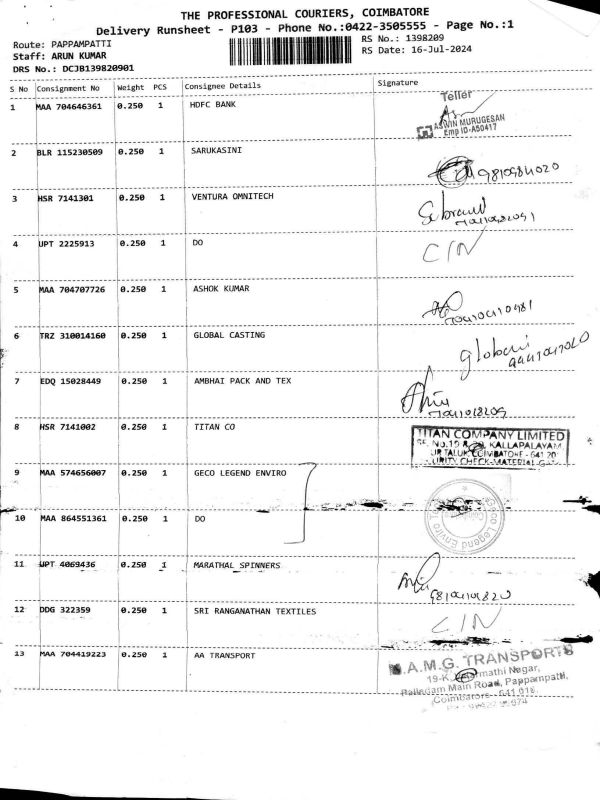 THE PROFESSIONAL COURIERS, COIMBATORE
Delivery Runsheet - P103 - Phone No.:0422-3505555 - Page No.:1
Route: PAPPAMPATTI
RS No.: 1398209
Staff: ARUN KUMAR
RS Date: 16-Jul-2024
DRS No.: DCJB139820901
S No Consignment No Weight PCS Consignee Details Signature
1 MAA 704646361 0.250 1 HDFC BANK
Teller
ASWIN MURUGESAN
Emp ID-A50417
2 BLR 115230509 0.250 1 SARUKASINI
3 HSR 7141301 0.250 1 VENTURA OMNITECH
4 UPT 2225913 0.250 1 DO
CIN
5 MAA 704707726 0.250 1 ASHOK KUMAR
6 TRZ 310014160 0.250 1 GLOBAL CASTING
7 EDQ 15028449 0.250 1 AMBHAI PACK AND TEX
8 HSR 7141002 0.250 1 TITAN CO
TITAN COMPANY LIMITED
KALLAPALAYAM
COIMBATORE - 641 201
CHECK-MATERIAL
9 MAA 574656007 0.250 1 GECO LEGEND ENVIRO
Geco Legend Enviro
10 MAA 864551361 0.250 1 DO
11 UPT 4069436 0.250 1 MARATHAL SPINNERS
12 DDG 322359 0.250 1 SRI RANGANATHAN TEXTILES
CIN
13 MAA 704419223 0.250 1 AA TRANSPORT
A.M.G. TRANSPORTS
Nagar,
Main Road, Pappampatti,
Coimbatore - 641 016